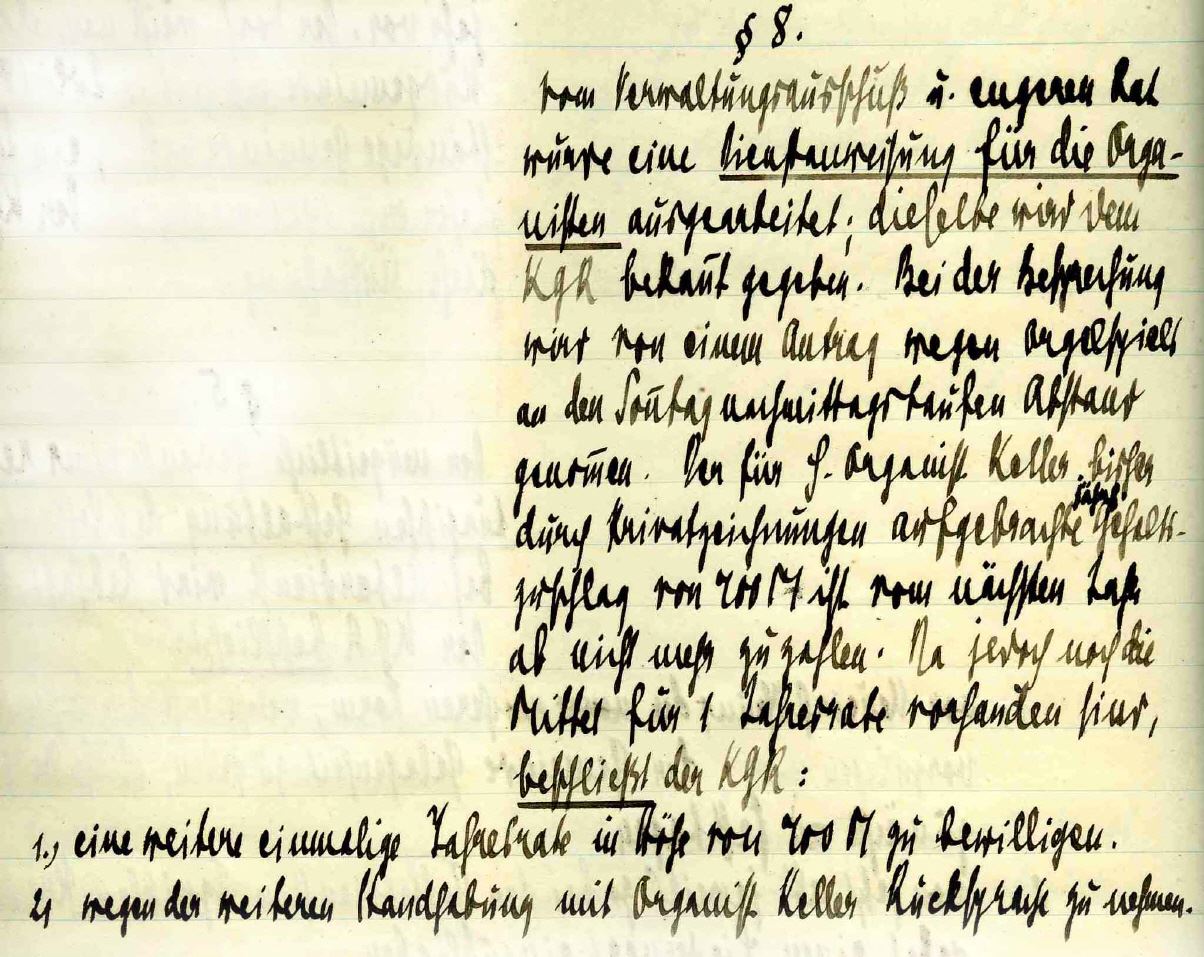 § 8.
Vom Verwaltungsausschuß u. engeren Rat
wurde eine Dienstanweisung für die Orga-
nisten ausgearbeitet; dieselbe wird dem
KGR bekan̄t gegeben. Bei der Besprechung
wird von einem Antrag wegen Orgelspiels
an den Son̄tagnachmittagstaufen Abstand
genom̄en. Der für H. Organist Keller bisher
durch Privatzeichnungen aufgebrachte jährl. Gehalts-
zuschlag von 400 M ist vom nächsten Jahr
ab nicht mehr zu zahlen. Da jedoch noch die
Mittel für 1 Jahresrate vorhanden sind,
beschließt der KGR:
1.) eine weitere einmalige Jahresrate in Höhe von 400 M zu bewilligen.
2) wegen der weiteren Handhabung mit Organist Keller Rücksprache zu nehmen.